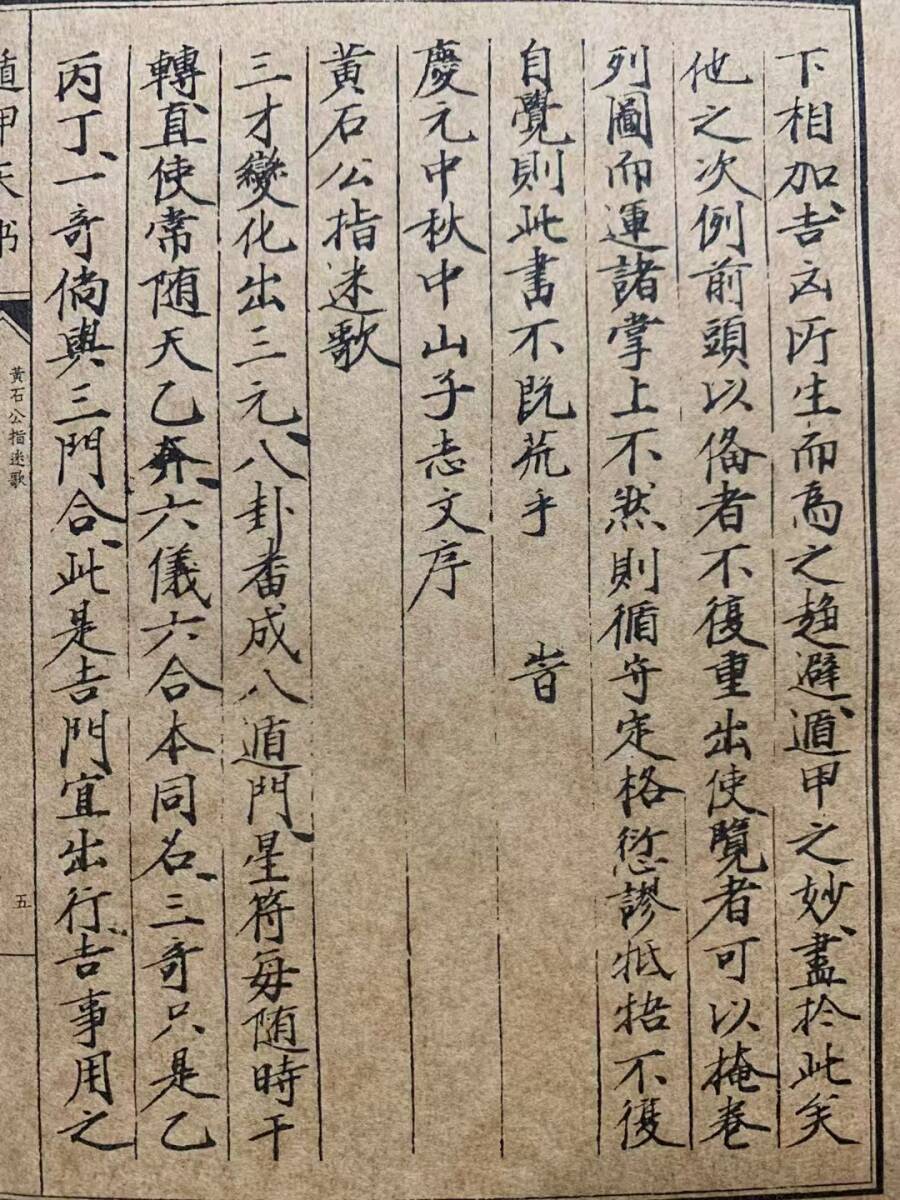 下相加吉凶所生而為之趨避遁甲之妙盡於此矣
他之次例前頭以俻者不復重出使覽者可以掩卷
列圖而運諸掌上不然則循守定格愆謬牴牾不復
自覺則此書不既荒乎 旹
慶元中秋中山子志文序
黃石公指迷歌
三才變化出三元八卦番成八遁門星符每随時干
轉直使常随天乙奔六儀六合本同名三奇只是乙
丙丁一奇倘與三門合此是吉門宜出行吉事用之
遁甲天书
黃石公指迷歌
五